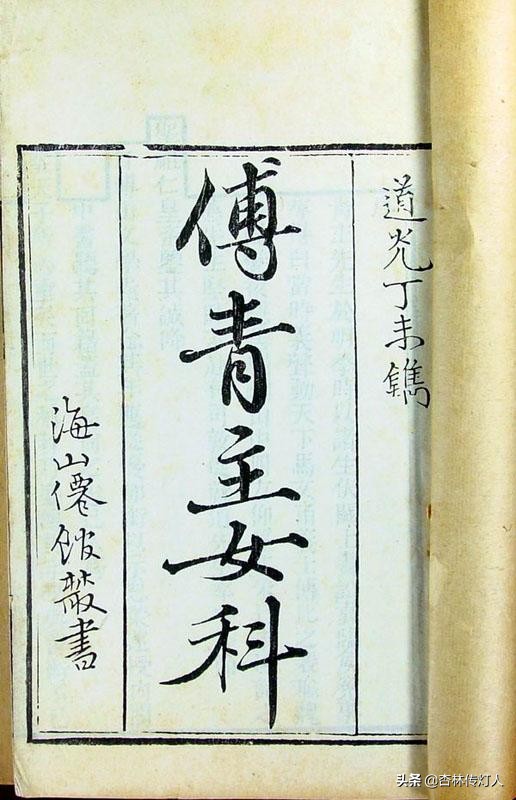 道光丁未鐫
傅青主女科
海山僊館叢書
头条 @杏林传灯人